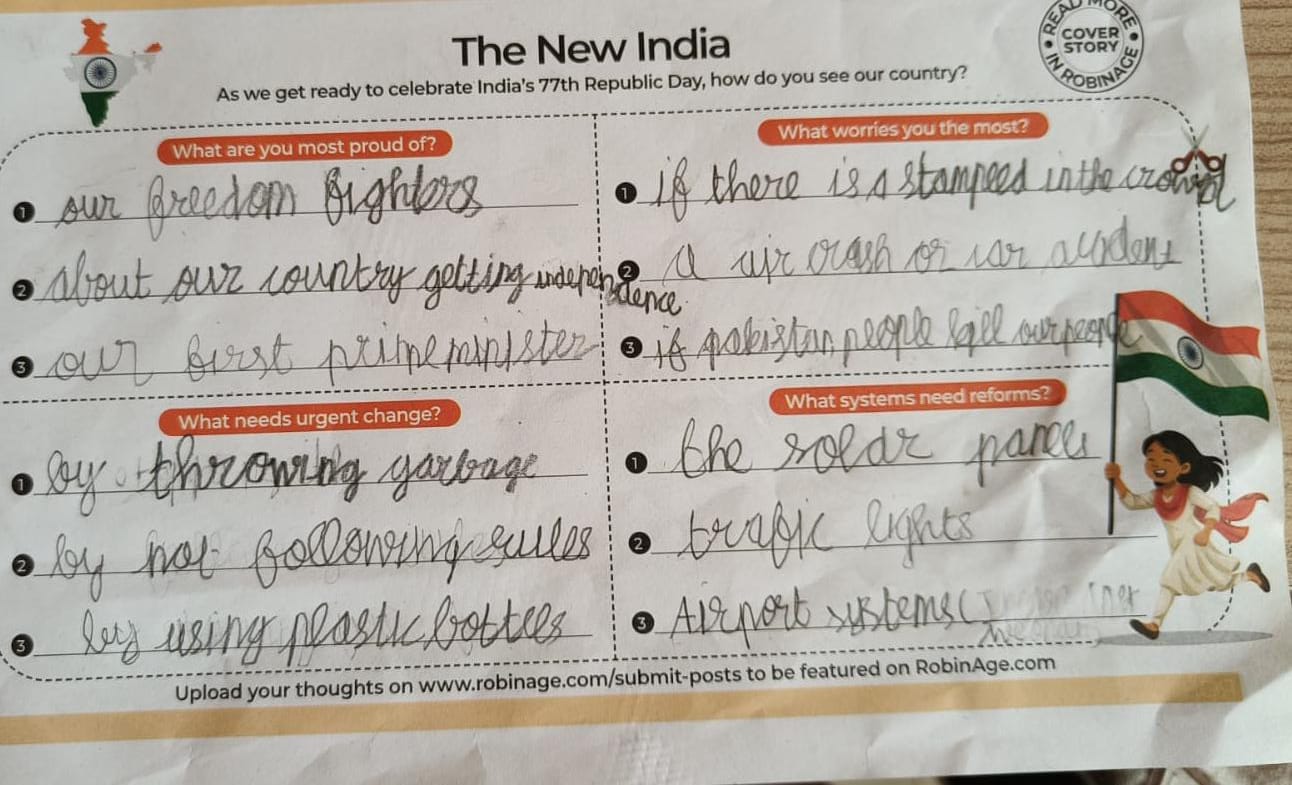 The New India
READ MORE
COVER STORY
IN ROBINAGE
As we get ready to celebrate India's 77th Republic Day, how do you see our country?
What are you most proud of?
1 our freedom fighters
2 about our country getting independence
3 our first prime minister
What worries you the most?
1 if there is a stampeed in the crowd
2 a air crash or car accident
3 if pakistan people kill our people
What needs urgent change?
1 by throwing garbage
2 by not following rules
3 by using plastic bottles
What systems need reforms?
1 the solar panels
2 trafic lights
3 Airport systems (
Upload your thoughts on www.robinage.com/submit-posts to be featured on RobinAge.com